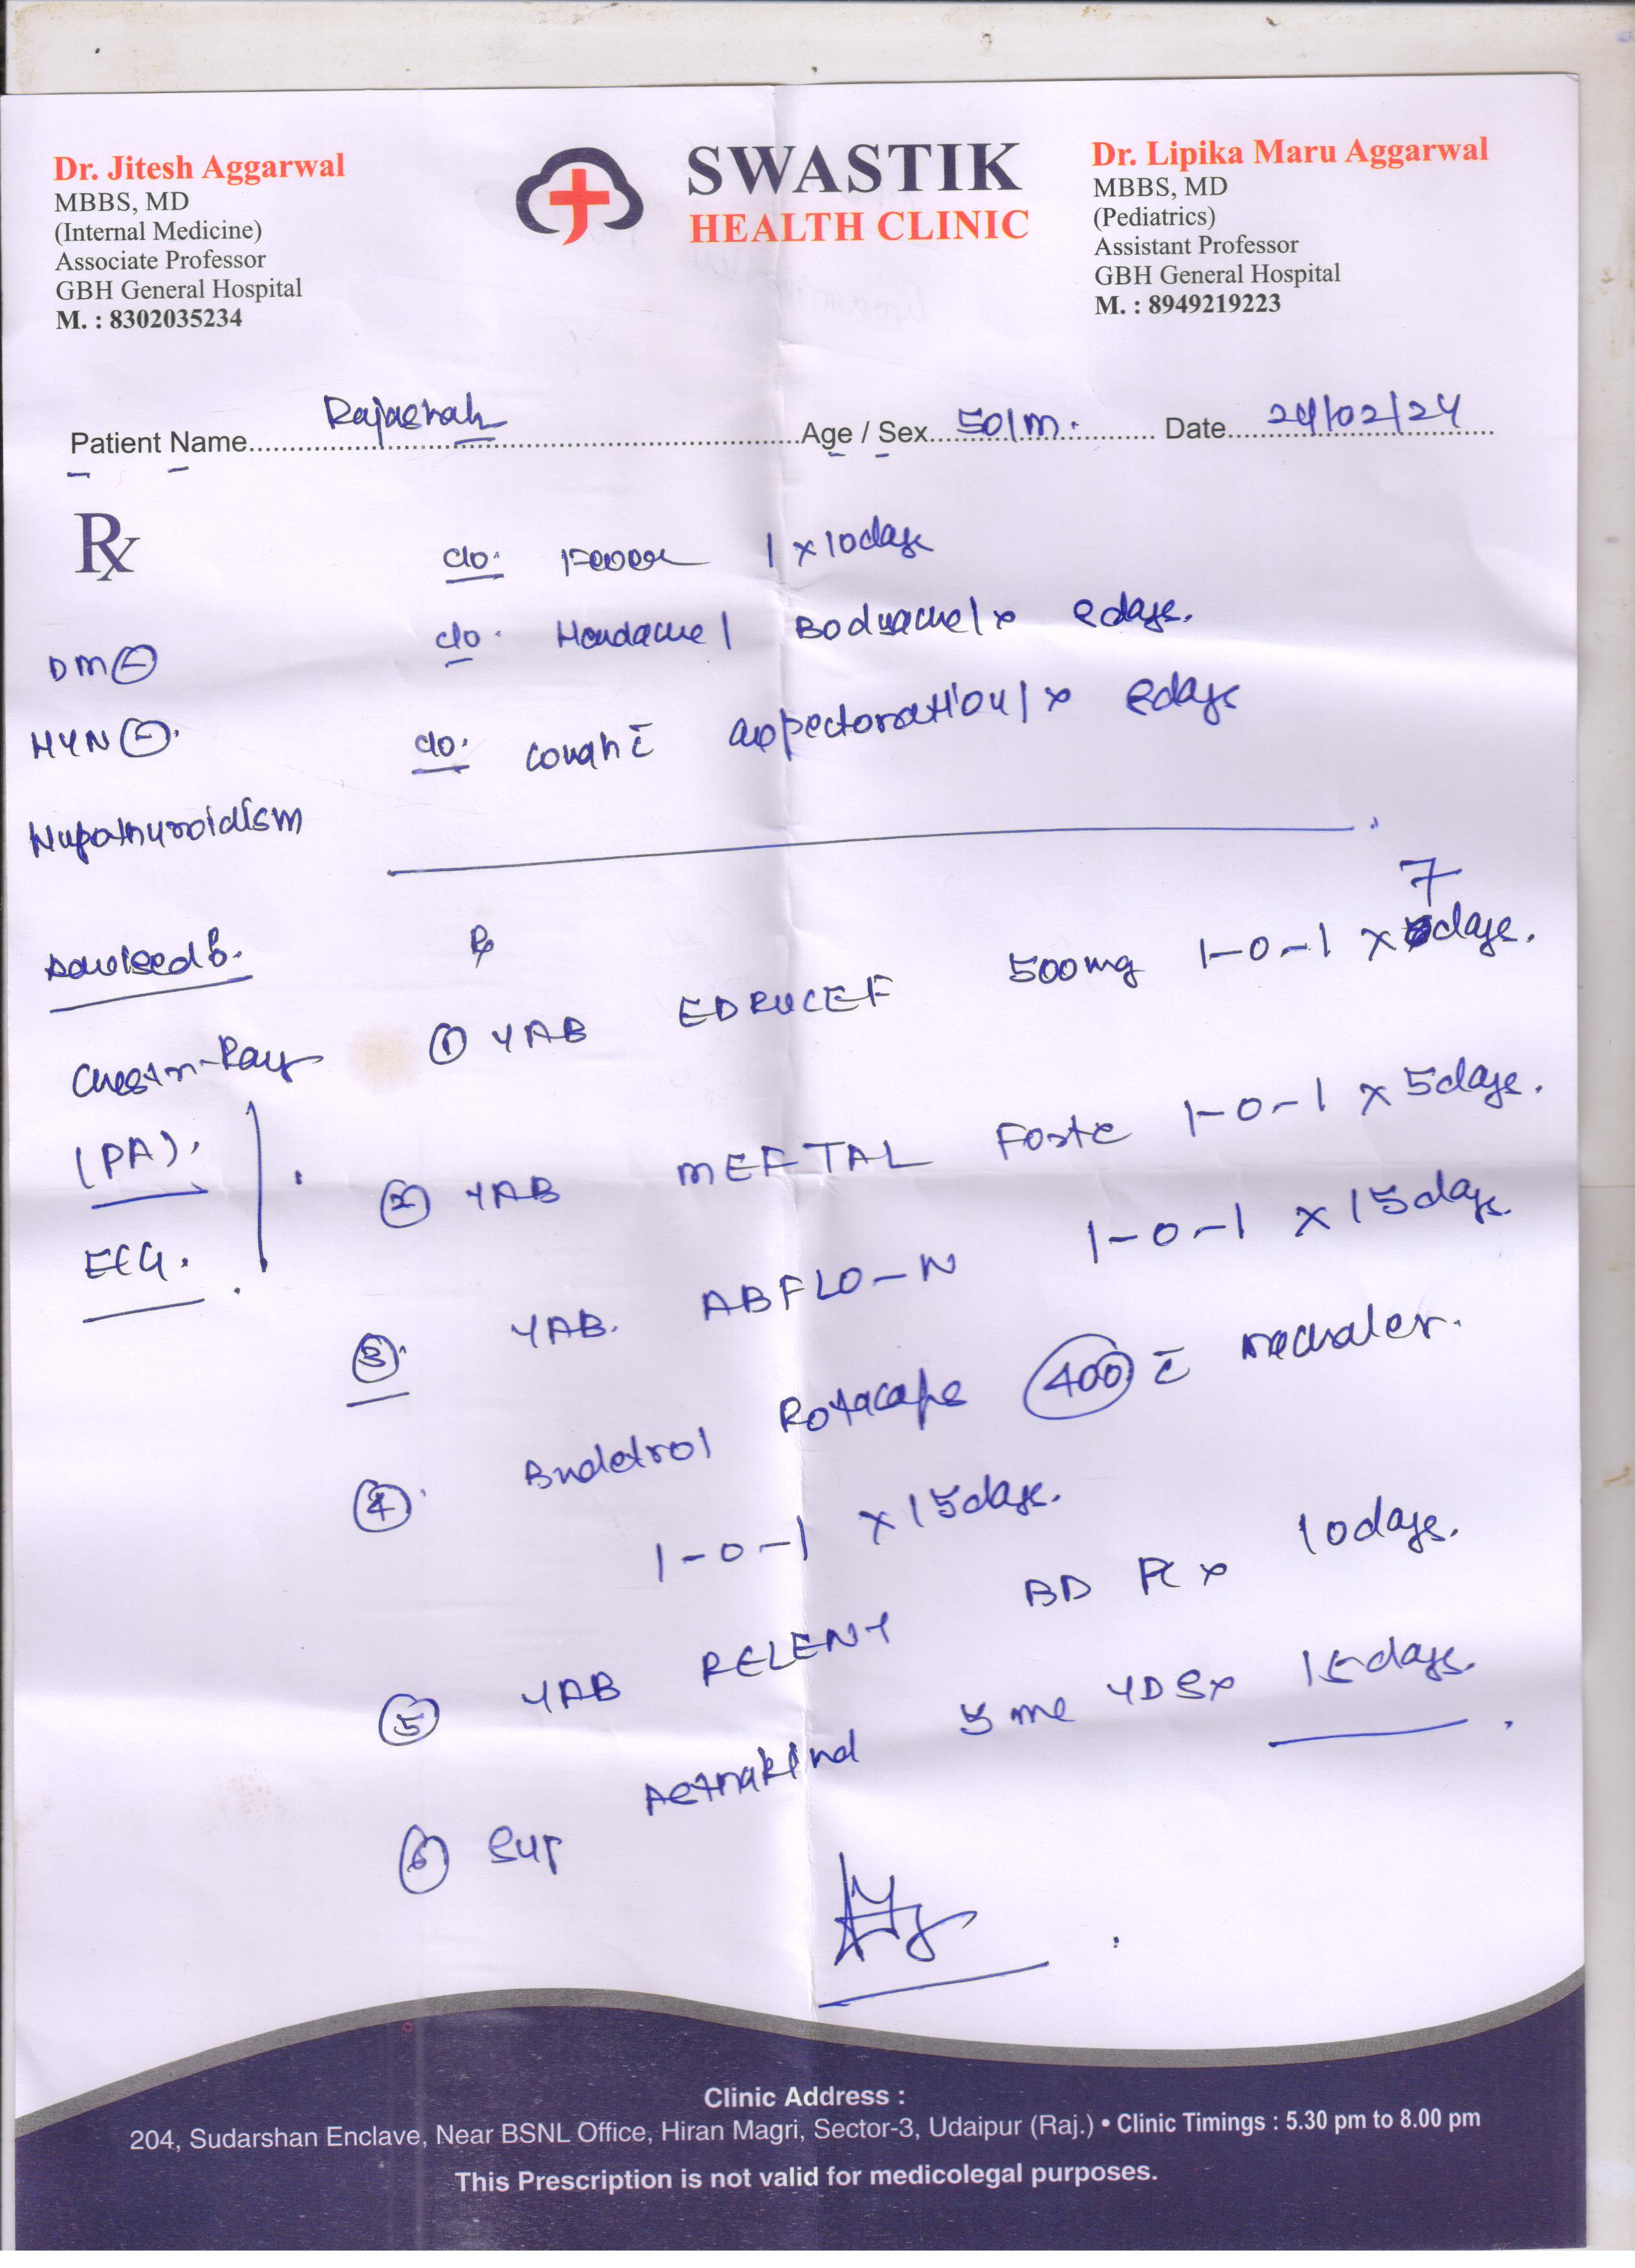 Dr. Jitesh Aggarwal
MBBS, MD
(Internal Medicine)
Associate Professor
GBH General Hospital
M. : 8302035234
SWASTIK
HEALTH CLINIC
Dr. Lipika Maru Aggarwal
MBBS, MD
(Pediatrics)
Assistant Professor
GBH General Hospital
M. : 8949219223
Patient Name Age / Sex 50/M. Date 24/02/24
Rx
c/o. Fever 1 x 10days
c/o. Headache / Bodyache / x days.
c/o. cough c̄ expectoration / x days
DM ⊖
HTN ⊖.
Hypothyroidism
Advised
Chest X-Ray
(PA).
ECG.
Rx
① TAB 500mg 1-0-1 x 7 days.
② TAB MEFTAL Forte 1-0-1 x 5days.
③. TAB. ABFLO-N 1-0-1 x 15days.
④. Budetrol Rotacaps 400 c̄
1-0-1 x 15days.
⑤ TAB RELENT BD PC x 10days.
⑥ Syp 5 ml TDS x 15days.
Clinic Address :
204, Sudarshan Enclave, Near BSNL Office, Hiran Magri, Sector-3, Udaipur (Raj.) • Clinic Timings : 5.30 pm to 8.00 pm
This Prescription is not valid for medicolegal purposes.